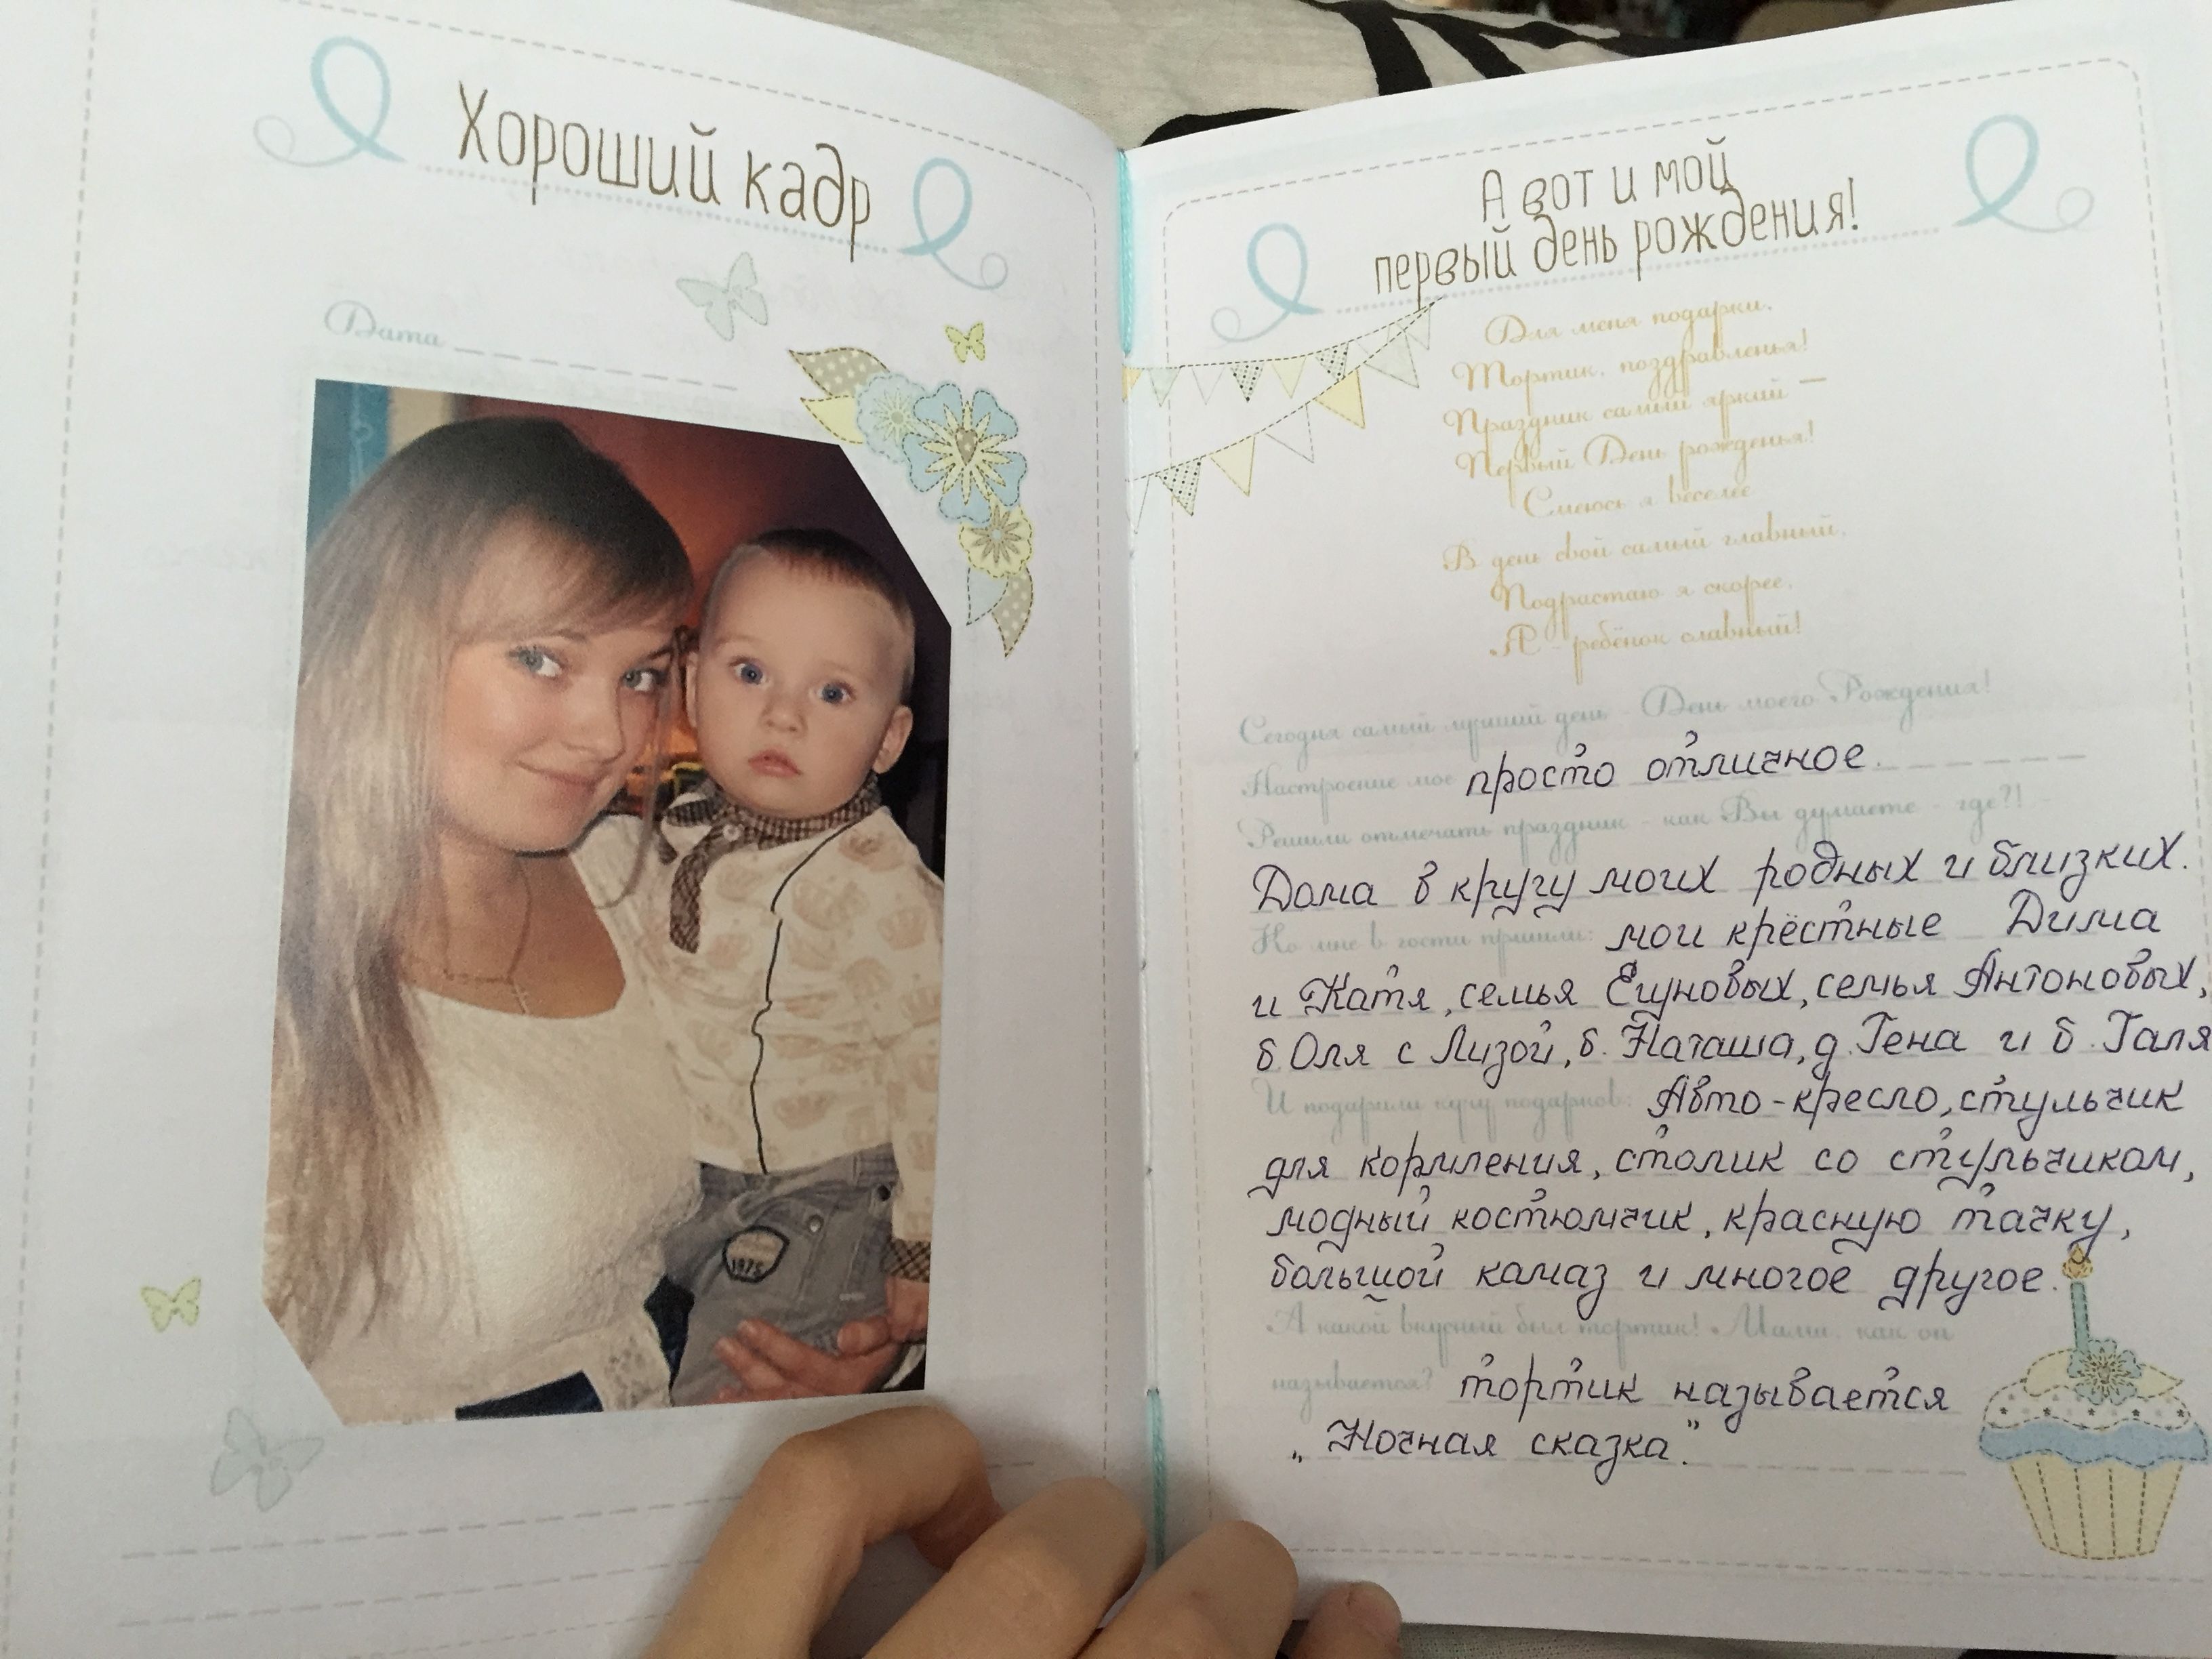 Хороший кадр
Дата
1975
А вот и мой
первый день рождения!
Для меня подарки,
Тортик, поздравленья!
Праздник самый яркий —
Первый День рожденья!
Смеюсь я веселее
В день свой самый главный,
Подрастаю я скорее,
Я - ребёнок славный!
Сегодня самый лучший день - День моего Рождения!
Настроение мое просто отличное.
Решили отмечать праздник - как Вы думаете - где?! -
Дома в кругу моих родных и близких.
Ко мне в гости пришли: мои крёстные Дима
и Катя, семья Ешуновых, семья Антоновых,
б. Оля с Лизой, б. Наташа, д. Гена и б. Галя
И подарили кучу подарков: Авто-кресло, стульчик
для кормления, столик со стульчиком,
модный костюмчик, красную тачку,
большой камаз и многое другое.
А какой вкусный был тортик! Мама, как он
называется? тортик называется
„Ночная сказка".